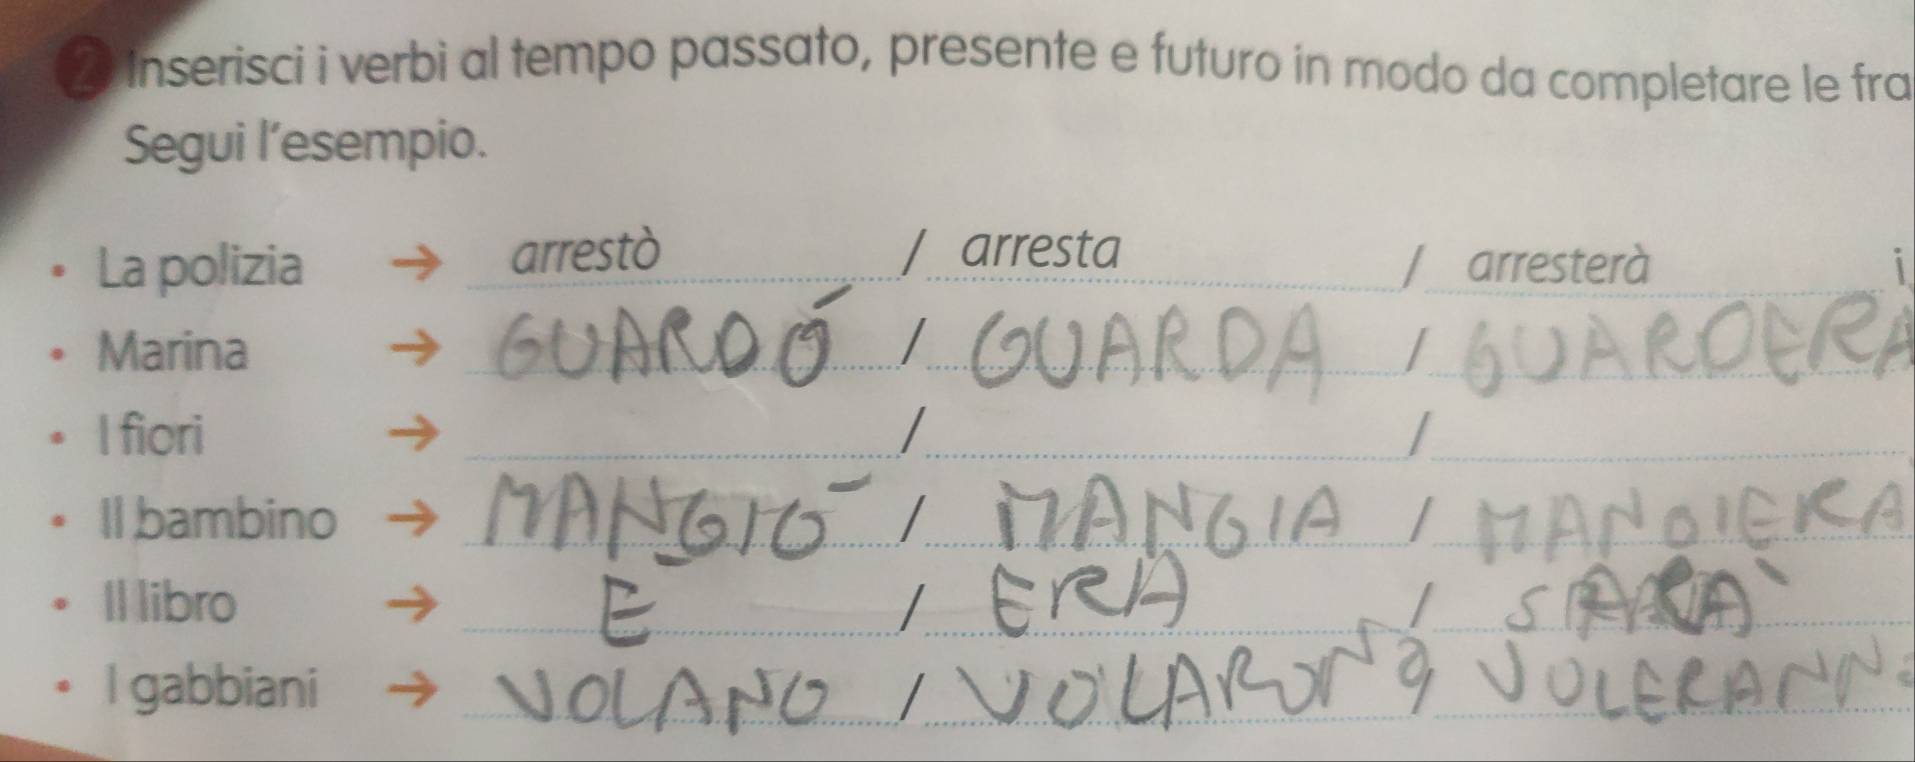 2 Inserisci i verbi al tempo passato, presente e futuro in modo da completare le fra
Segui l'esempio.
• La polizia → arrestò / arresta / arresterà i
• Marina → GUARDÓ / GUARDA / GUARDERA
• I fiori → / /
• Il bambino → MANGIO / MANGIA / MANGIERA
• Il libro → E / ERA / SARA'
• I gabbiani → VOLANO / VOLARONO / VOLERANNO